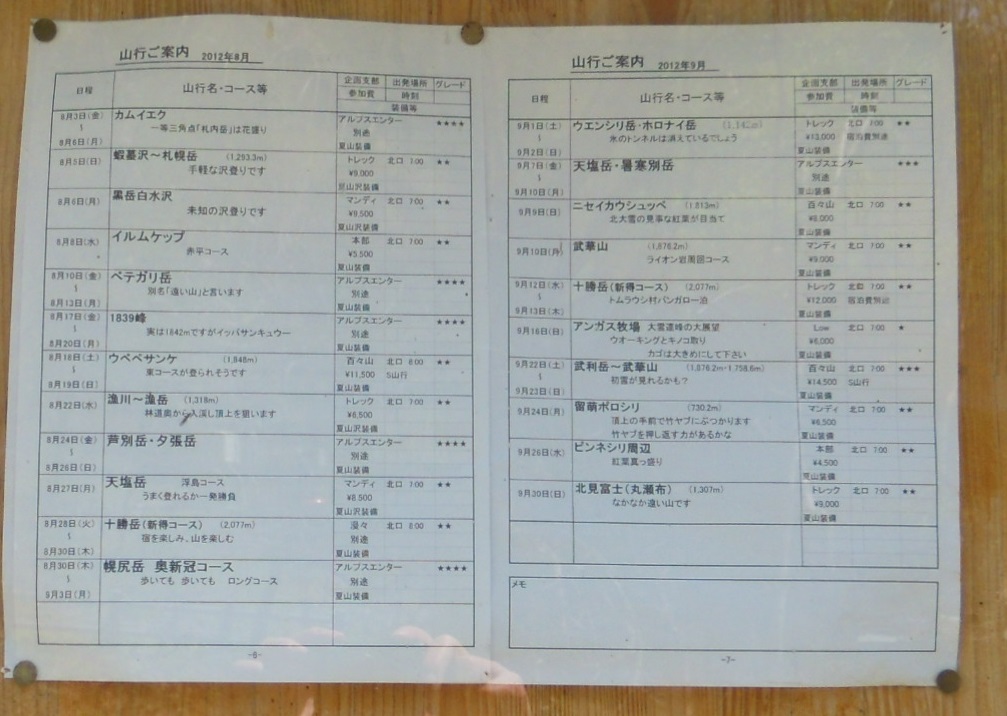 山行ご案内 2012年8月
日程 山行名・コース等 企画支部 出発場所 グレード
参加費 時刻
装備等
8月3日(金) カムイエク アルプスエンター ★★★★
～ 一等三角点「札内岳」は花盛り 別途
8月6日(月) 夏山装備
8月5日(日) 蝦蟇沢～札幌岳 (1,293.3m) トレック 北口 7:00 ★★
手軽な沢登りです ¥9,000
夏山沢装備
8月6日(月) 黒岳白水沢 マンディ 北口 7:00 ★★
未知の沢登りです ¥9,500
夏山沢装備
8月8日(水) イルムケップ 本部 北口 7:00 ★★
赤平コース ¥5,500
夏山装備
8月10日(金) ペテガリ岳 アルプスエンター ★★★★
～ 別名「遠い山」と言います 別途
8月13日(月) 夏山装備
8月17日(金) 1839峰 アルプスエンター ★★★★
～ 実は1842mですがイッパサンキュウー 別途
8月20日(月) 夏山装備
8月18日(土) ウペペサンケ (1,848m) 百々山 北口 8:00 ★★
～ 東コースが登られそうです ¥11,500 S山行
8月19日(日) 夏山装備
8月22日(水) 漁川～漁岳 (1,318m) トレック 北口 7:00 ★★
林道奥から入渓し頂上を狙います ¥6,500
夏山沢装備
8月24日(金) 芦別岳・夕張岳 アルプスエンター ★★★★
～ 別途
8月26日(日) 夏山装備
8月27日(月) 天塩岳 浮島コース マンディ 北口 7:00 ★★
うまく登れるか一発勝負 ¥8,500
夏山沢装備
8月28日(火) 十勝岳(新得コース) (2,077m) 漫々 北口 8:00 ★★
～ 宿を楽しみ、山を楽しむ 別途
8月30日(木) 夏山装備
8月30日(木) 幌尻岳 奥新冠コース アルプスエンター ★★★★
～ 歩いても 歩いても ロングコース 別途
9月3日(月) 夏山装備
-6-
山行ご案内 2012年9月
日程 山行名・コース等 企画支部 出発場所 グレード
参加費 時刻
装備等
9月1日(土) ウエンシリ岳・ホロナイ岳 トレック 北口 7:00 ★★
～ 氷のトンネルは消えているでしょう ¥13,000 宿泊費別途
9月2日(日) 夏山装備
9月7日(金) 天塩岳・暑寒別岳 アルプスエンター ★★★
～ 別途
9月10日(月) 夏山装備
9月9日(日) ニセイカウシュッペ (1,813m) 百々山 北口 7:00 ★★
北大雪の見事な紅葉が目当て ¥8,000
夏山装備
9月10日(月) 武華山 (1,876.2m) マンディ 北口 7:00 ★★
ライオン岩周回コース ¥9,000
夏山装備
9月12日(水) 十勝岳(新得コース) (2,077m) トレック 北口 7:00 ★★
～ トムラウシ村バンガロー泊 ¥12,000 宿泊費別途
9月13日(木) 夏山装備
9月16日(日) アンガス牧場 大雪連峰の大展望 Low 北口 7:00 ★
ウオーキングとキノコ取り ¥6,000
カゴは大きめにして下さい 夏山装備
9月22日(土) 武利岳～武華山 (1,876.2m・1,758.6m) 百々山 北口 7:00 ★★★
～ 初雪が見れるかも? ¥14,500 S山行
9月23日(日) 夏山装備
9月24日(月) 留萌ポロシリ (730.2m) マンディ 北口 7:00 ★★
頂上の手前で竹ヤブにぶつかります ¥6,500
竹ヤブを押し返す力があるかな 夏山装備
9月26日(水) ピンネシリ周辺 本部 北口 7:00 ★★
紅葉真っ盛り ¥4,500
夏山装備
9月30日(日) 北見富士(丸瀬布) (1,307m) トレック 北口 7:00 ★★
なかなか遠い山です ¥9,000
夏山装備
メモ
-7-